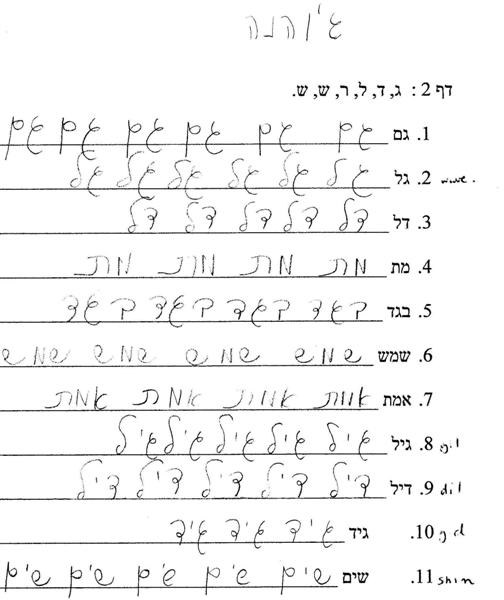 ג'והנה
דף 2 : ג, ד, ל, ר, ש, ש.
1. גם גם גם גם גם גם גם
wave. 2. גל גל גל גל גל גל גל
3. דל דל דל דל דל דל
4. מת מת מת מת מת
5. בגד בגד בגד בגד בגד
6. שמש שמש שמש שמש שמש
7. אמת אמת אמת אמת אמת
gil 8. גיל גיל גיל גיל גיל גיל
dil 9. דיל דיל דיל דיל דיל דיל
g d 10. גיד גיד גיד גיד
shin 11. שים שים שים שים שים שים